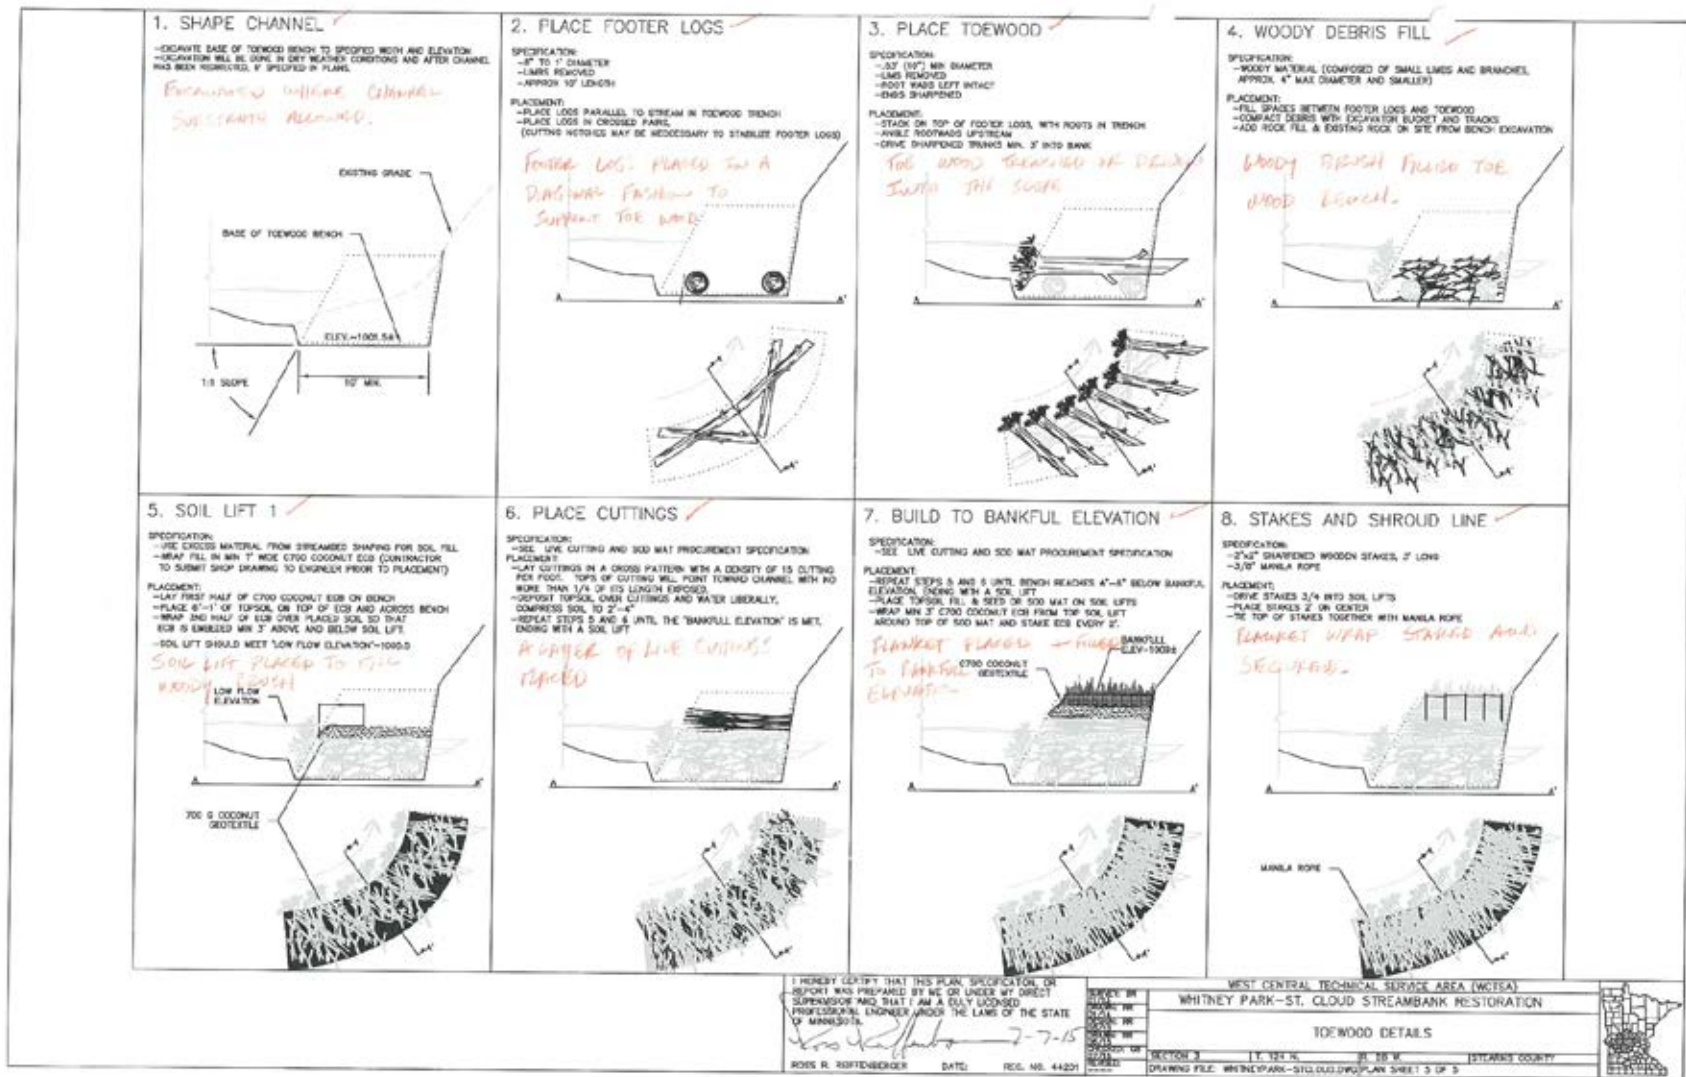 1. SHAPE CHANNEL
-EXCAVATE BASE OF TOEWOOD BENCH TO SPECIFIED WIDTH AND ELEVATION
-EXCAVATION WILL BE DONE IN DRY WEATHER CONDITIONS AND AFTER CHANNEL
HAS BEEN REDIRECTED, IF SPECIFIED IN PLANS.
EXCAVATED WHERE CHANNEL
SUBSTRATE ALLOWED.
EXISTING GRADE
BASE OF TOEWOOD BENCH
1:1 SLOPE
10' MIN.
2. PLACE FOOTER LOGS
SPECIFICATION:
-8" TO 1' DIAMETER
-LIMBS REMOVED
-APPROX 10' LENGTH
PLACEMENT:
-PLACE LOGS PARALLEL TO STREAM IN TOEWOOD TRENCH
-PLACE LOGS IN CROSSED PAIRS,
(CUTTING NOTCHES MAY BE NECCESSARY TO STABILIZE FOOTER LOGS)
FOOTER LOGS PLACED IN A
DIAGONAL FASHION TO
SUPPORT TOE WOOD
A A'
3. PLACE TOEWOOD
SPECIFICATION:
-.83' (10") MIN DIAMETER
-LIMS REMOVED
-ROOT WADS LEFT INTACT
-ENDS SHARPENED
PLACEMENT:
-STACK ON TOP OF FOOTER LOGS, WITH ROOTS IN TRENCH
-ANGLE ROOTWADS UPSTREAM
-DRIVE SHARPENED TRUNKS MIN. 3' INTO BANK
TOE WOOD TRENCHED OR DRIVEN
INTO THE SLOPE
A A'
4. WOODY DEBRIS FILL
SPECIFICATION:
-WOODY MATERIAL (COMPOSED OF SMALL LIMBS AND BRANCHES,
APPROX. 4" MAX DIAMETER AND SMALLER)
PLACEMENT:
-FILL SPACES BETWEEN FOOTER LOGS AND TOEWOOD
-COMPACT DEBRIS WITH EXCAVATOR BUCKET AND TRACKS
-ADD ROCK FILL & EXISTING ROCK ON SITE FROM BENCH EXCAVATION
WOODY BRUSH FILLED TOE
WOOD BENCH.
A A'
5. SOIL LIFT 1
SPECIFICATION:
-USE EXCESS MATERIAL FROM STREAMBED SHAPING FOR SOIL FILL
-WRAP FILL IN MIN 7' WIDE C700 COCONUT ECB (CONTRACTOR
TO SUBMIT SHOP DRAWING TO ENGINEER PRIOR TO PLACEMENT)
PLACEMENT:
-LAY FIRST HALF OF C700 COCONUT ECB ON BENCH
-PLACE 6"-1' OF TOPSOIL ON TOP OF ECB AND ACROSS BENCH
-WRAP 2ND HALF OF ECB OVER PLACED SOIL SO THAT
ECB IS EMBEDED MIN 3' ABOVE AND BELOW SOIL LIFT.
-SOIL LIFT SHOULD MEET "LOW FLOW ELEVATION"
SOIL LIFT PLACED TO FILL
WOODY BRUSH
LOW FLOW
ELEVATION
A A'
700 G COCONUT
GEOTEXTILE
6. PLACE CUTTINGS
SPECIFICATION:
-SEE LIVE CUTTING AND SOD MAT PROCUREMENT SPECIFICATION
PLACEMENT:
-LAY CUTTINGS IN A CROSS PATTERN WITH A DENSITY OF 15 CUTTING
PER FOOT. TOPS OF CUTTING WILL POINT TOWARD CHANNEL WITH NO
MORE THAN 1/4 OF ITS LENGTH EXPOSED.
-DEPOSIT TOPSOIL OVER CUTTINGS AND WATER LIBERALLY,
COMPRESS SOIL TO 2"-4"
-REPEAT STEPS 5 AND 6 UNTIL THE "BANKFULL ELEVATION" IS MET,
ENDING WITH A SOIL LIFT
A LAYER OF LIVE CUTTINGS
PLACED
A A'
7. BUILD TO BANKFUL ELEVATION
SPECIFICATION:
-SEE LIVE CUTTING AND SOD MAT PROCUREMENT SPECIFICATION
PLACEMENT:
-REPEAT STEPS 5 AND 6 UNTIL BENCH REACHES 4"-6" BELOW BANKFUL
ELEVATION, ENDING WITH A SOIL LIFT
-PLACE TOPSOIL FILL & SEED OR SOD MAT ON SOIL LIFTS
-WRAP MIN 3' C700 COCONUT ECB FROM TOP SOIL LIFT
AROUND TOP OF SOD MAT AND STAKE ECB EVERY 2'.
BLANKET PLACED + FILLED
TO BANKFULL
ELEVATION
BANKFULL
C700 COCONUT
GEOTEXTILE
A A'
8. STAKES AND SHROUD LINE
SPECIFICATION:
-2"x2" SHARPENED WOODEN STAKES, 3' LONG
-3/8" MANILA ROPE
PLACEMENT:
-DRIVE STAKES 3/4 INTO SOIL LIFTS
-PLACE STAKES 2' ON CENTER
-TIE TOP OF STAKES TOGETHER WITH MANILA ROPE
BLANKET WRAP STAKED AND
SECURED.
A A'
MANILA ROPE
I HEREBY CERTIFY THAT THIS PLAN, SPECIFICATION, OR
REPORT WAS PREPARED BY ME OR UNDER MY DIRECT
SUPERVISION AND THAT I AM A DULY LICENSED
PROFESSIONAL ENGINEER UNDER THE LAWS OF THE STATE
OF MINNESOTA.
7-7-15
DATE: REG. NO. 44201
WEST CENTRAL TECHNICAL SERVICE AREA (WCTSA)
WHITNEY PARK-ST. CLOUD STREAMBANK RESTORATION
TOEWOOD DETAILS
SECTION 3 T. 124 N. STEARNS COUNTY
DRAWING FILE: WHITNEYPARK-STCLOUD.DWG PLAN SHEET 5 OF 5